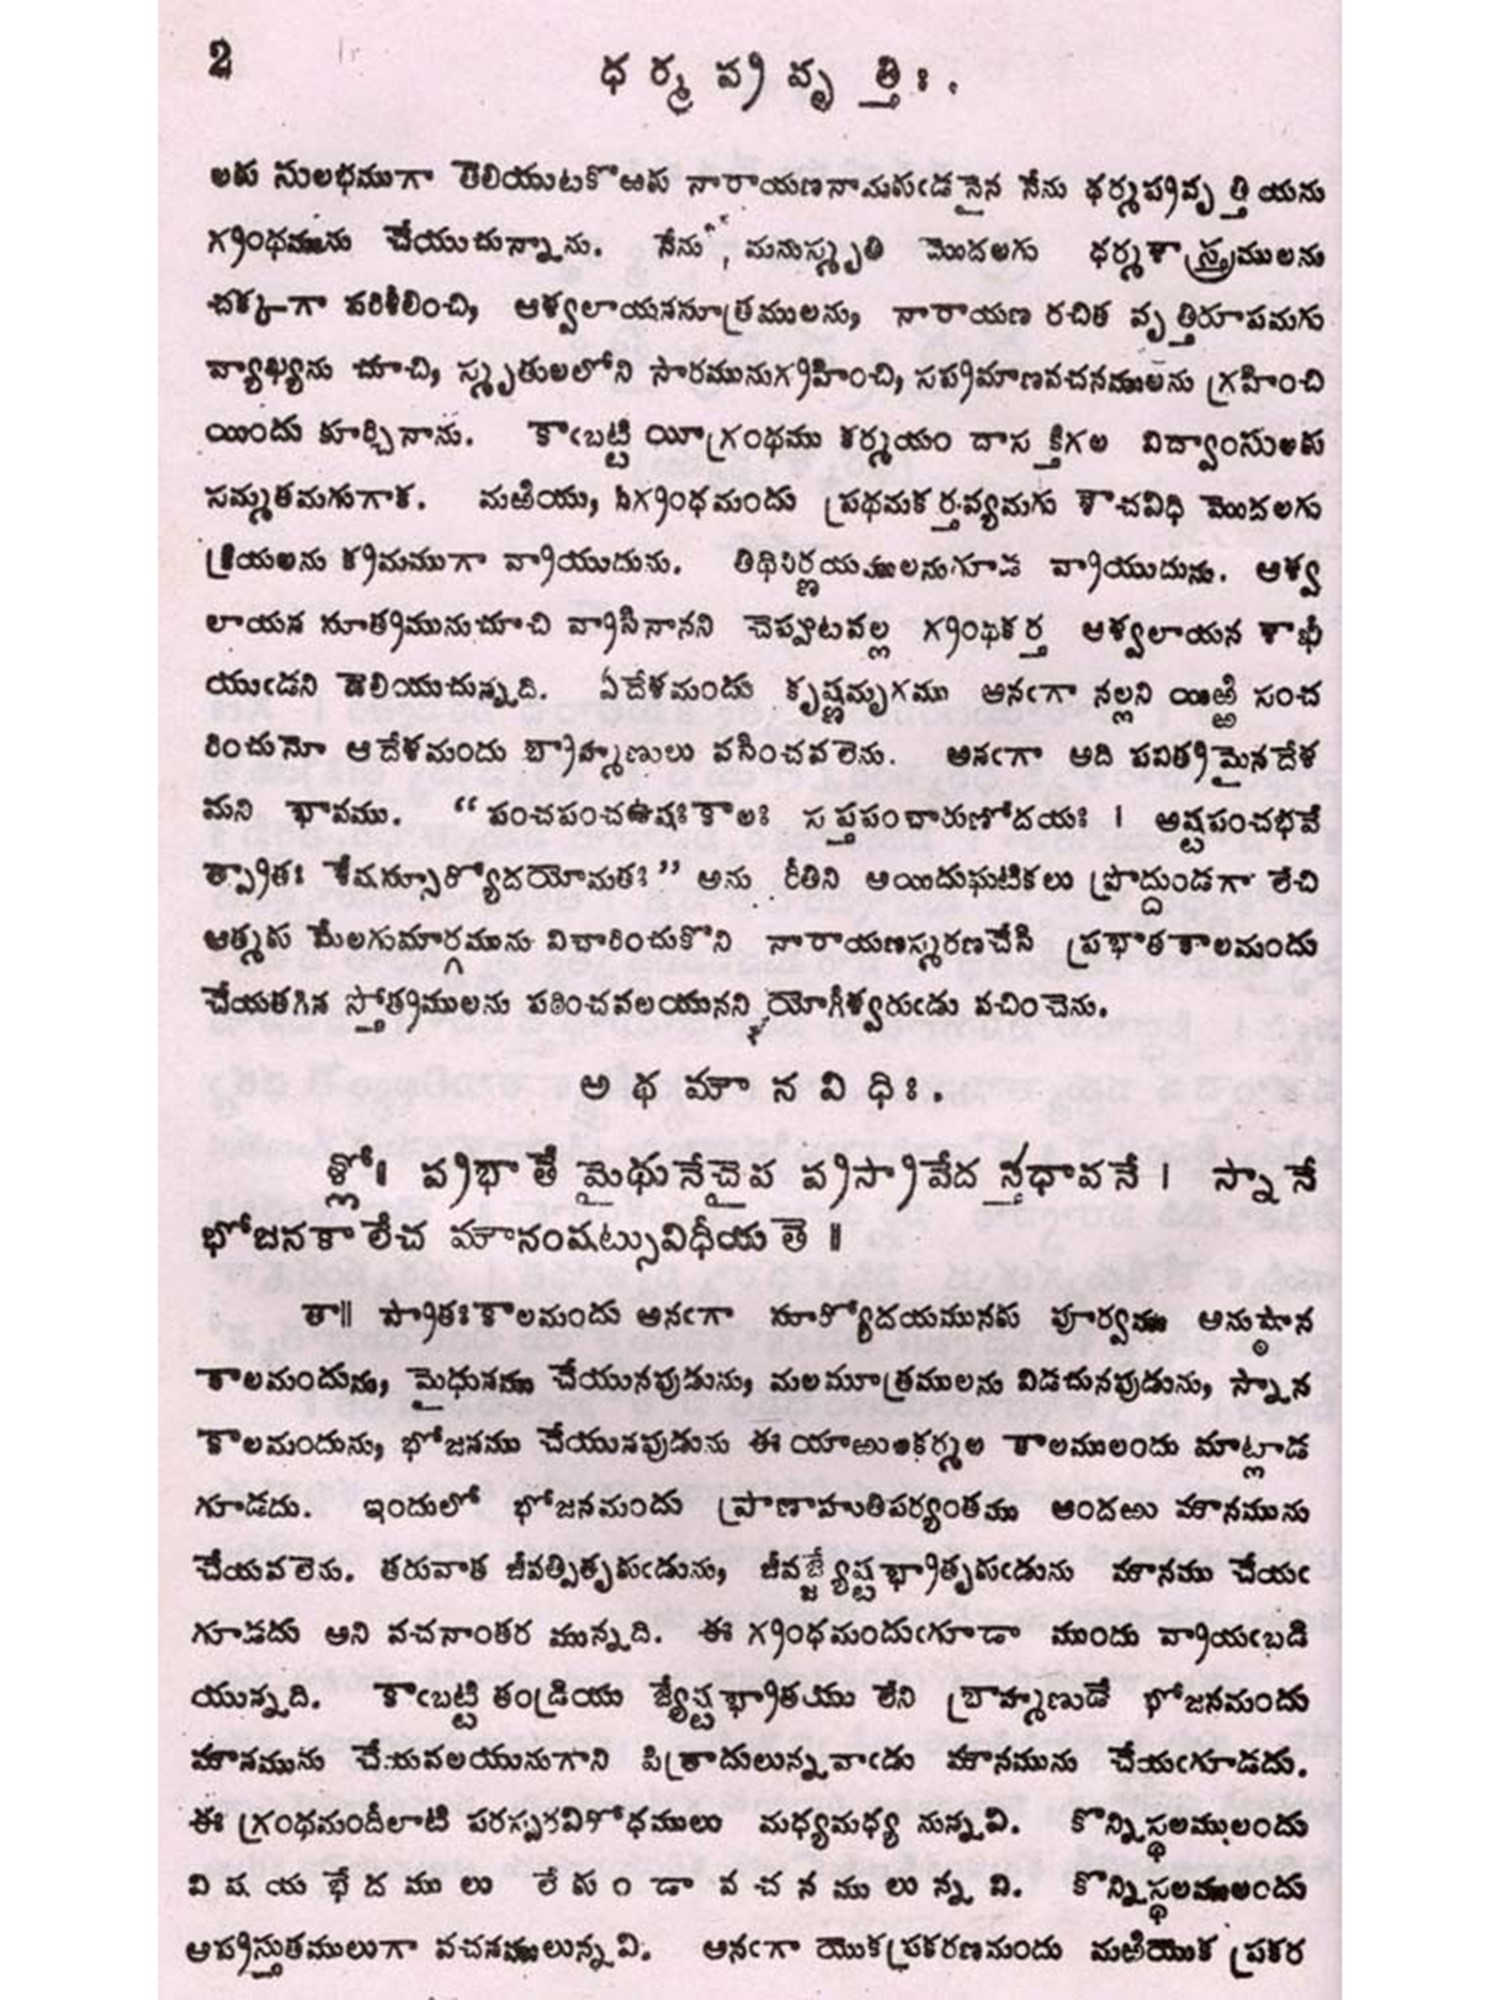 2
ధర్మప్రవృత్తిః.
లకు సులభముగా తెలియుటకొఱకు నారాయణనామకుఁడనైన నేను ధర్మప్రవృత్తియను
గ్రంథమును చేయుచున్నాను. నేను, మనుస్మృతి మొదలగు ధర్మశాస్త్రములను
చక్కగా పరిశీలించి, ఆశ్వలాయనసూత్రములను, నారాయణ రచిత వృత్తిరూపమగు
వ్యాఖ్యను చూచి, స్మృతులలోని సారమునుగ్రహించి, సప్రమాణవచనములను గ్రహించి
యిందు కూర్చినాను. కాఁబట్టి యీగ్రంథము కర్మయం దాసక్తిగల విద్వాంసులకు
సమ్మతమగుగాక. మఱియు, నీగ్రంధమందు ప్రథమకర్తవ్యమగు శౌచవిధి మొదలగు
క్రియలను క్రమముగా వ్రాయుదును. తిథినిర్ణయములనుగూడ వ్రాయుదును. ఆశ్వ
లాయన సూత్రమునుచూచి వ్రాసినానని చెప్పుటవల్ల గ్రంథకర్త ఆశ్వలాయన శాఖీ
యుఁడని తెలియుచున్నది. ఏదేశమందు కృష్ణమృగము అనఁగా నల్లని యిఱ్ఱి సంచ
రించునో ఆదేశమందు బ్రాహ్మణులు వసించవలెను. అనఁగా అది పవిత్రమైనదేశ
మని భావము. “పంచపంచఉషఃకాలః సప్తపంచారుణోదయః । అష్టపంచభవే
త్ప్రాతః శేషస్సూర్యోదయోమతః” అను రీతిని అయిదుఘటికలు ప్రొద్దుండగా లేచి
ఆత్మకు మేలగుమార్గమును విచారించుకొని నారాయణస్మరణచేసి ప్రభాతకాలమందు
చేయతగిన స్తోత్రములను పఠించవలయునని యోగీశ్వరుఁడు వచించెను.
అథమౌనవిధిః.
శ్లో॥ ప్రభాతే మైథునేచైవ ప్రస్రావేదన్తధావనే । స్నానే
భోజనకాలేచ మౌనంషట్సువిధీయతె ॥
తా॥ ప్రాతఃకాలమందు అనఁగా సూర్యోదయమునకు పూర్వము అనుష్ఠాన
కాలమందును, మైధునము చేయునపుడును, మలమూత్రములను విడచునపుడును, స్నాన
కాలమందును, భోజనము చేయునపుడును ఈ యాఱుకర్మల కాలములందు మాట్లాడ
గూడదు. ఇందులో భోజనమందు ప్రాణాహుతిపర్యంతము అందఱు మౌనమును
చేయవలెను. తరువాత జీవత్పితృకుఁడును, జీవజ్జ్యేష్టభ్రాతృకుఁడును మౌనము చేయఁ
గూడదు అని వచనాంతర మున్నది. ఈ గ్రంధమందుఁగూడా ముందు వ్రాయఁబడి
యున్నది. కాఁబట్టి తండ్రియు జ్యేష్టభ్రాతయు లేని బ్రాహ్మణుడే భోజనమందు
మౌనమును చేయవలయునుగాని పిత్రాదులున్నవాఁడు మౌనమును చేయఁగూడదు.
ఈ గ్రంధమందీలాటి పరస్పరవిరోధములు మధ్యమధ్య నున్నవి. కొన్నిస్థలములందు
విషయభేదములు లేకుండా వచనములున్నవి. కొన్నిస్థలములందు
అప్రస్తుతములుగా వచనములున్నవి. అనఁగా యొకప్రకరణమందు మఱియొక ప్రకర